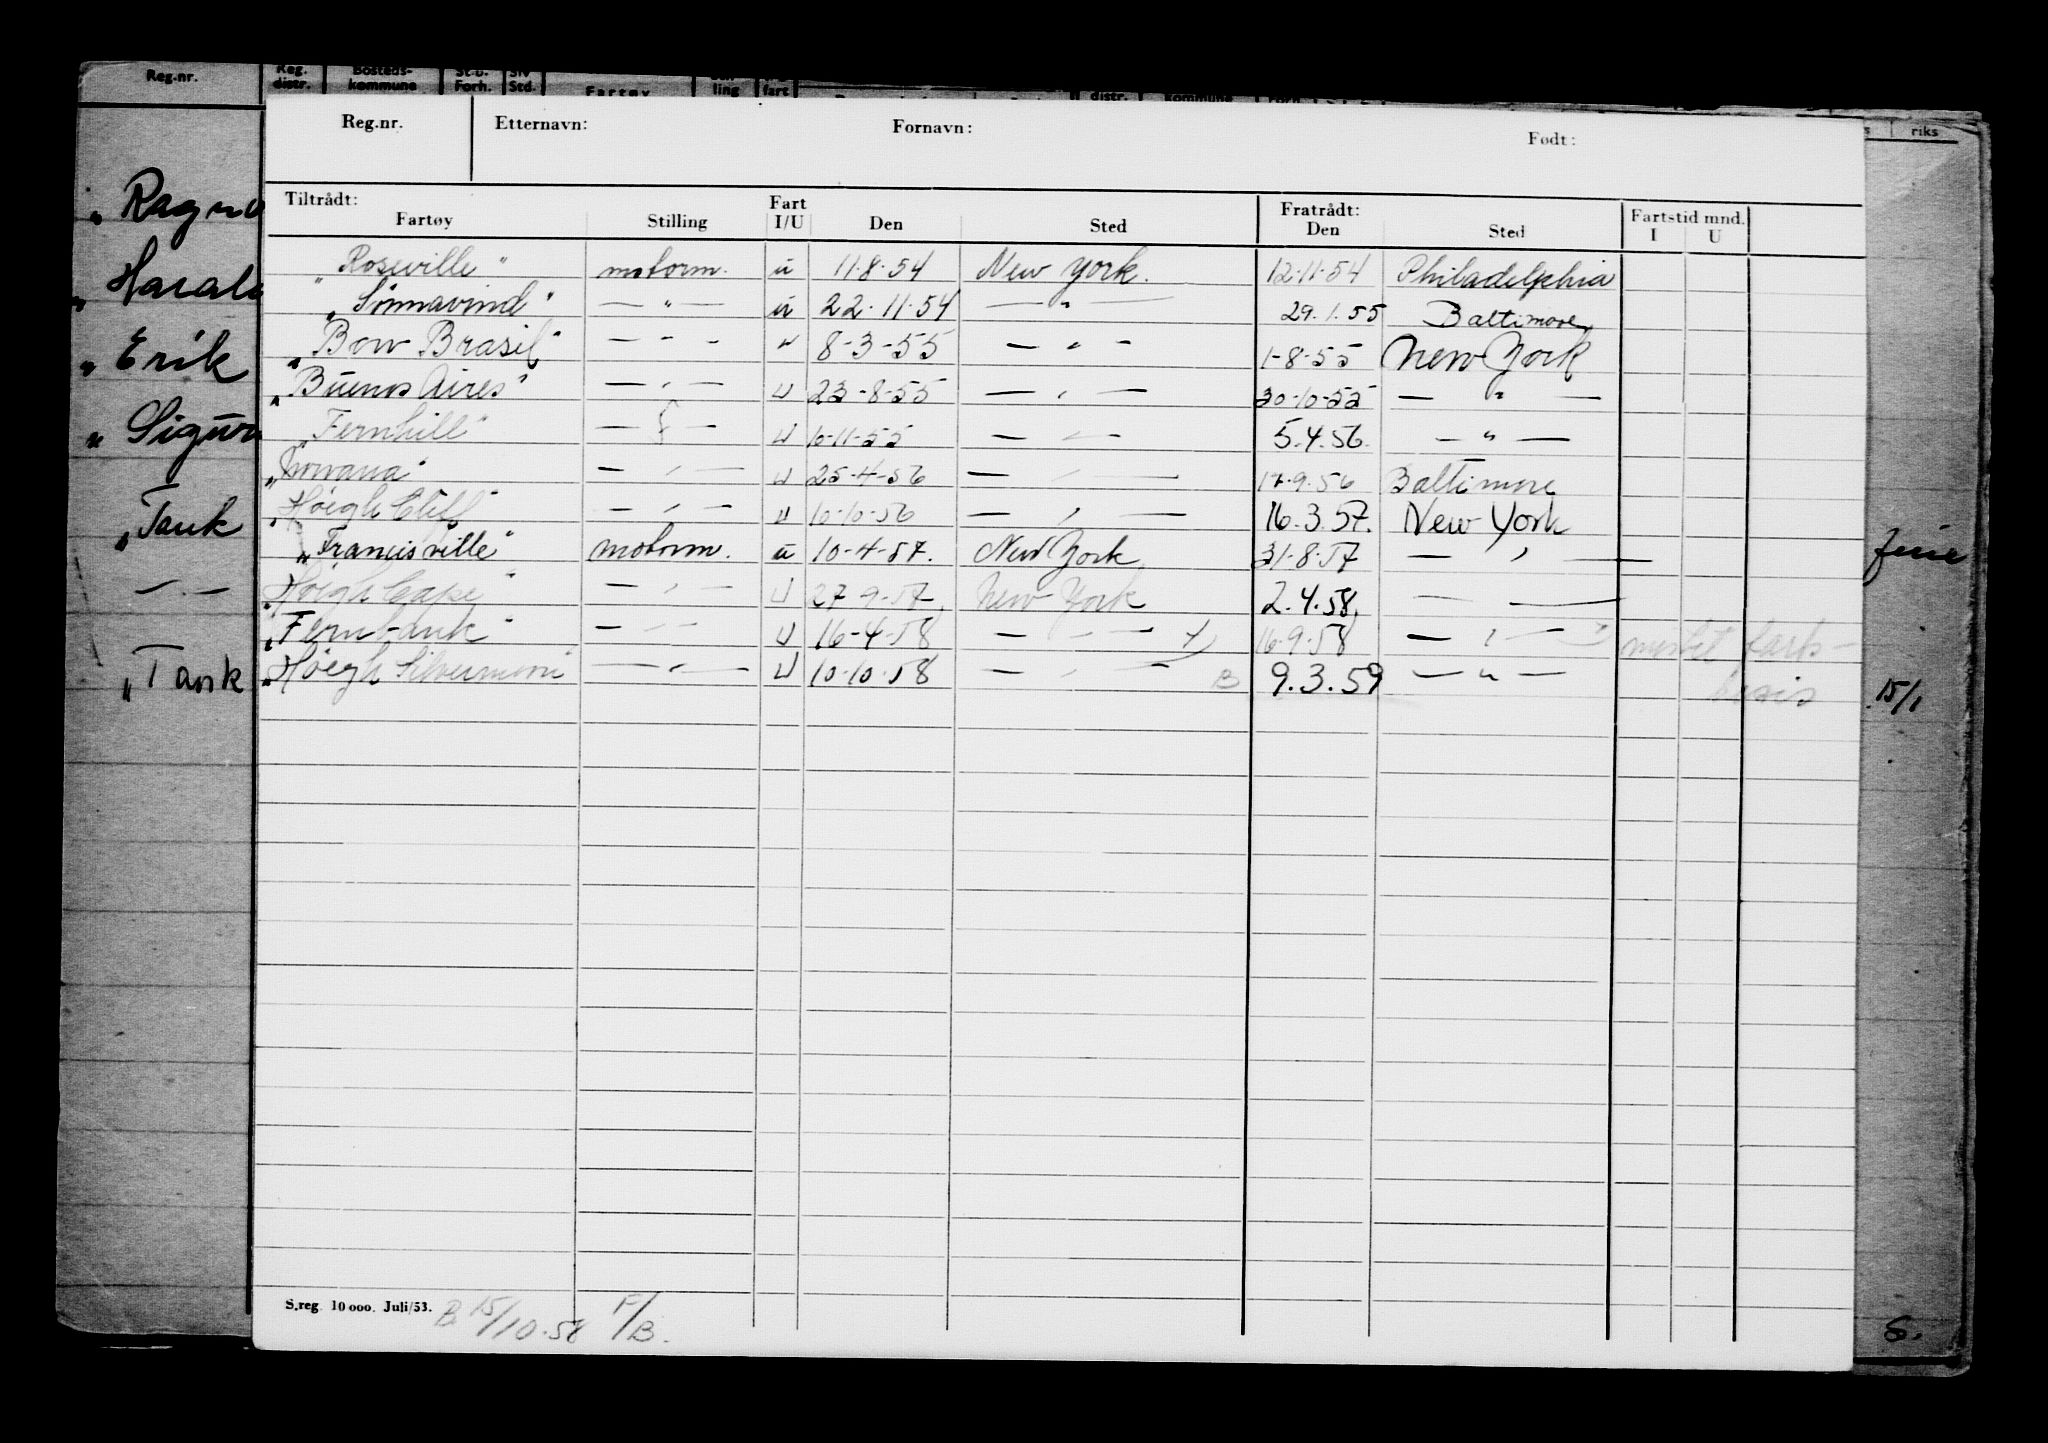 Reg.nr. Reg. distr. Bosteds- kommune Forh. Std. Fartøy ling fart distr. kommune riks
Reg.nr. Etternavn: Fornavn: Født:
Tiltrådt: Fartøy Stilling Fart I/U Den Sted Fratrådt: Den Sted Fartstid mnd. I U
"Roseville" motorm. u 11-8-54 New York. 12-11-54 Philadelphia
"Sønnavind" — " — u 22-11-54 — " 29.1.55 Baltimore
"Bow Brasil" — " — " 8-3-55 — " — 1-8-55 New York
"Buenos Aires" — " — U 23-8-55 — " — 30-10-55 — " —
"Fernhill" — " — U 10-11-55 — " — 5.4.56. — " —
— " — U 25-4-56 — " — 17.9.56 Baltimore
"Høegh Cliff" — " — U 10-10-56 — " — 16.3.57. New York
"Francisville" motorm. u 10-4-57. New York 31-8-57 — " —
"Høegh Cape" — " — U 27-9-57 New York 2.4.58. — " —
"Fernbank" — " — U 16-4-58 — " — 16-9-58 — " —
"Høegh Silvermoon — " — U 10-10-58 — " — B 9.3.59 — " —
S.reg. 10 000. Juli/53. B 15/10-58 F/B.
" Erik
"Tank
— " —
"Tank
15/1
S.